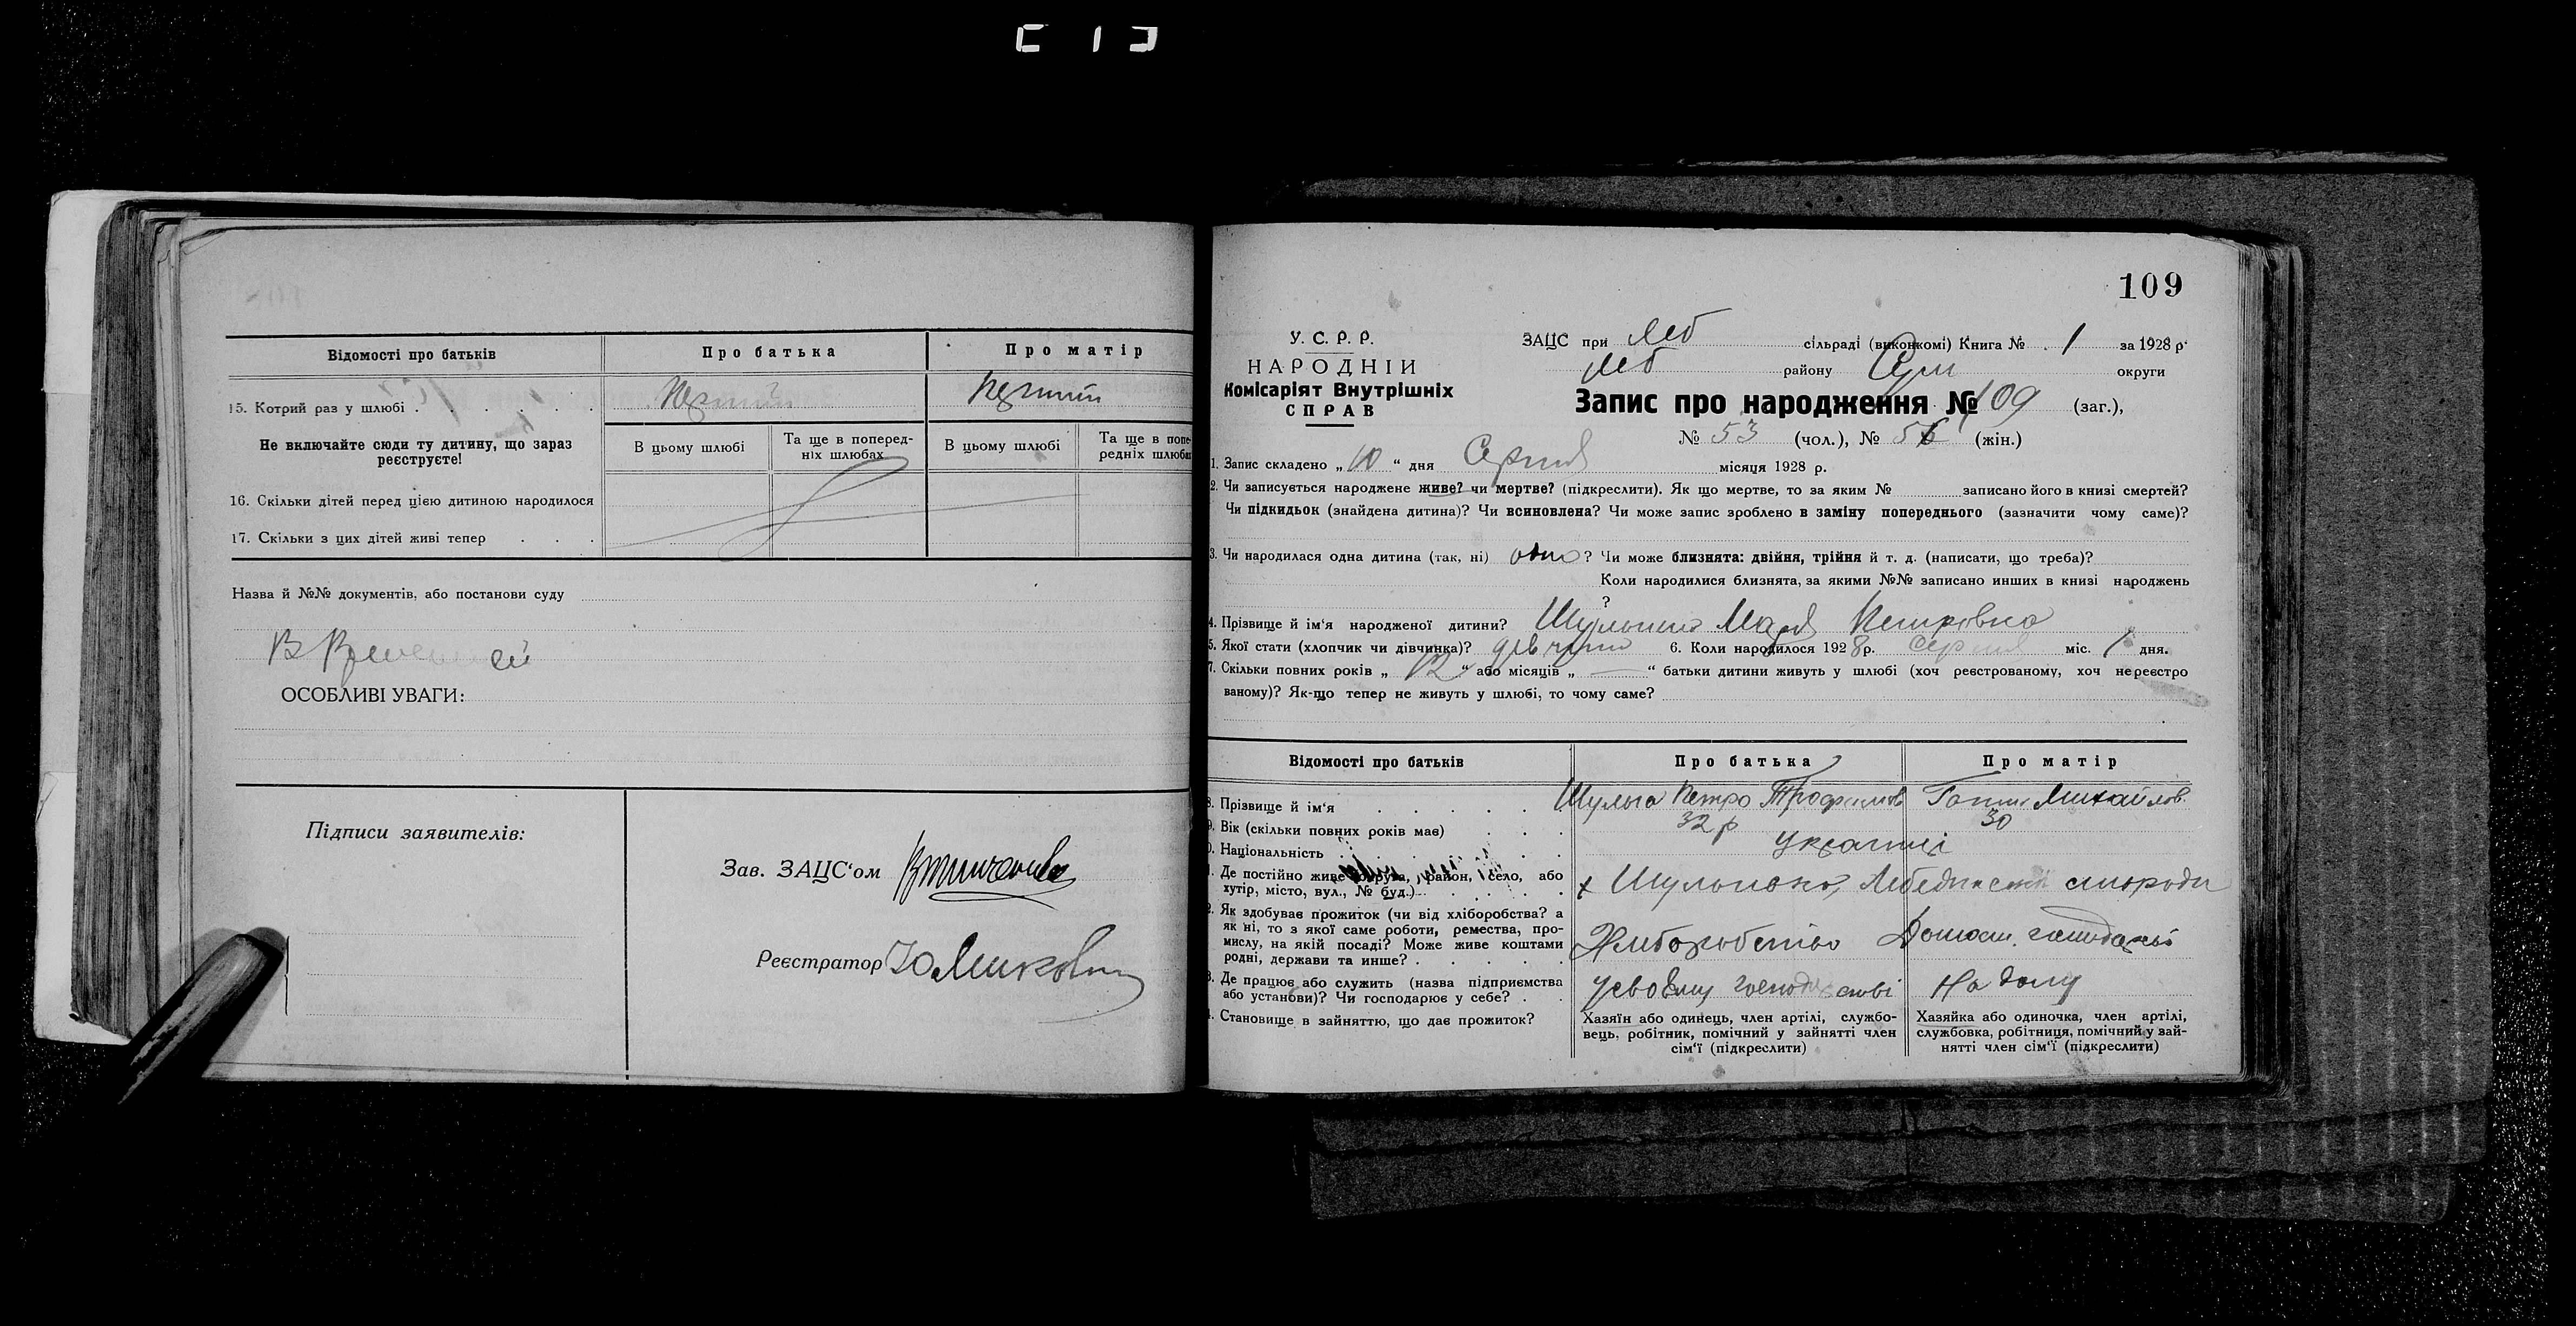 Відомості про батьків
Про батька
Про матір
15. Котрий раз у шлюбі
Перший
Перший
Не включайте сюди ту дитину, що зараз
реєструєте!
В цьому шлюбі
Та ще в поперед-
ніх шлюбах
В цьому шлюбі
Та ще в попе-
редніх шлюбах
16. Скільки дітей перед цією дитиною народилося
17. Скільки з цих дітей живі тепер
Назва й №№ документів, або постанови суду
ОСОБЛИВІ УВАГИ:
Підписи заявителів:
Зав. ЗАЦС'ом
Реєстратор
109
У. С. Р. Р.
НАРОДНІЙ
Комісаріят Внутрішніх
СПРАВ
ЗАЦС при Леб сільраді (виконкомі) Книга № 1 за 1928 р.
Леб району Сум округи
Запис про народження № 109 (заг.),
№ 53 (чол.), № 56 (жін.)
1. Запис складено „10“ дня Серпня місяця 1928 р.
2. Чи записується народжене живе? чи мертве? (підкреслити). Як що мертве, то за яким № записано його в книзі смертей?
Чи підкидьок (знайдена дитина)? Чи всиновлена? Чи може запис зроблено в заміну попереднього (зазначити чому саме)?
3. Чи народилася одна дитина (так, ні) одна? Чи може близнята: двійня, трійня й т. д. (написати, що треба)?
Коли народилися близнята, за якими №№ записано инших в книзі народжень
?
4. Прізвище й ім'я народженої дитини? Марія Петровна
5. Якої стати (хлопчик чи дівчинка)? дівчина 6. Коли народилося 1928 р. серпня міс. 1 дня.
7. Скільки повних років „12“ або місяців „—“ батьки дитини живуть у шлюбі (хоч реєстрованому, хоч нереєстро
ваному)? Як-що тепер не живуть у шлюбі, то чому саме?
Відомості про батьків
Про батька
Про матір
8. Прізвище й ім'я
Шульга Петро Трофимов
Ганна Михайлов.
9. Вік (скільки повних років має)
32 р
30
10. Національність
україн ці
11. Де постійно живе (округа, район, село, або
хутір, місто, вул., № буд.)
х
12. Як здобуває прожиток (чи від хліборобства? а
як ні, то з якої саме роботи, ремества, про-
мислу, на якій посаді? Може живе коштами
родні, держави та инше?
Хліборобство
Домаш. господарка
13. Де працює або служить (назва підприємства
або установи)? Чи господарює у себе?
у своєму господарстві
На дому
14. Становище в зайняттю, що дає прожиток?
Хазяїн або одинець, член артілі, службо-
вець, робітник, помічний у зайнятті член
сім'ї (підкреслити)
Хазяйка або одиночка, член артілі,
службовка, робітниця, помічний у зай-
нятті член сім'ї (підкреслити)